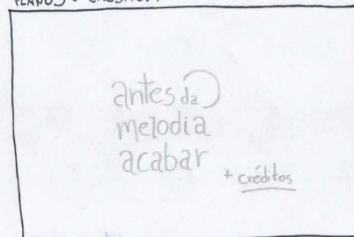 antes da
melodia
acabar
+ créditos